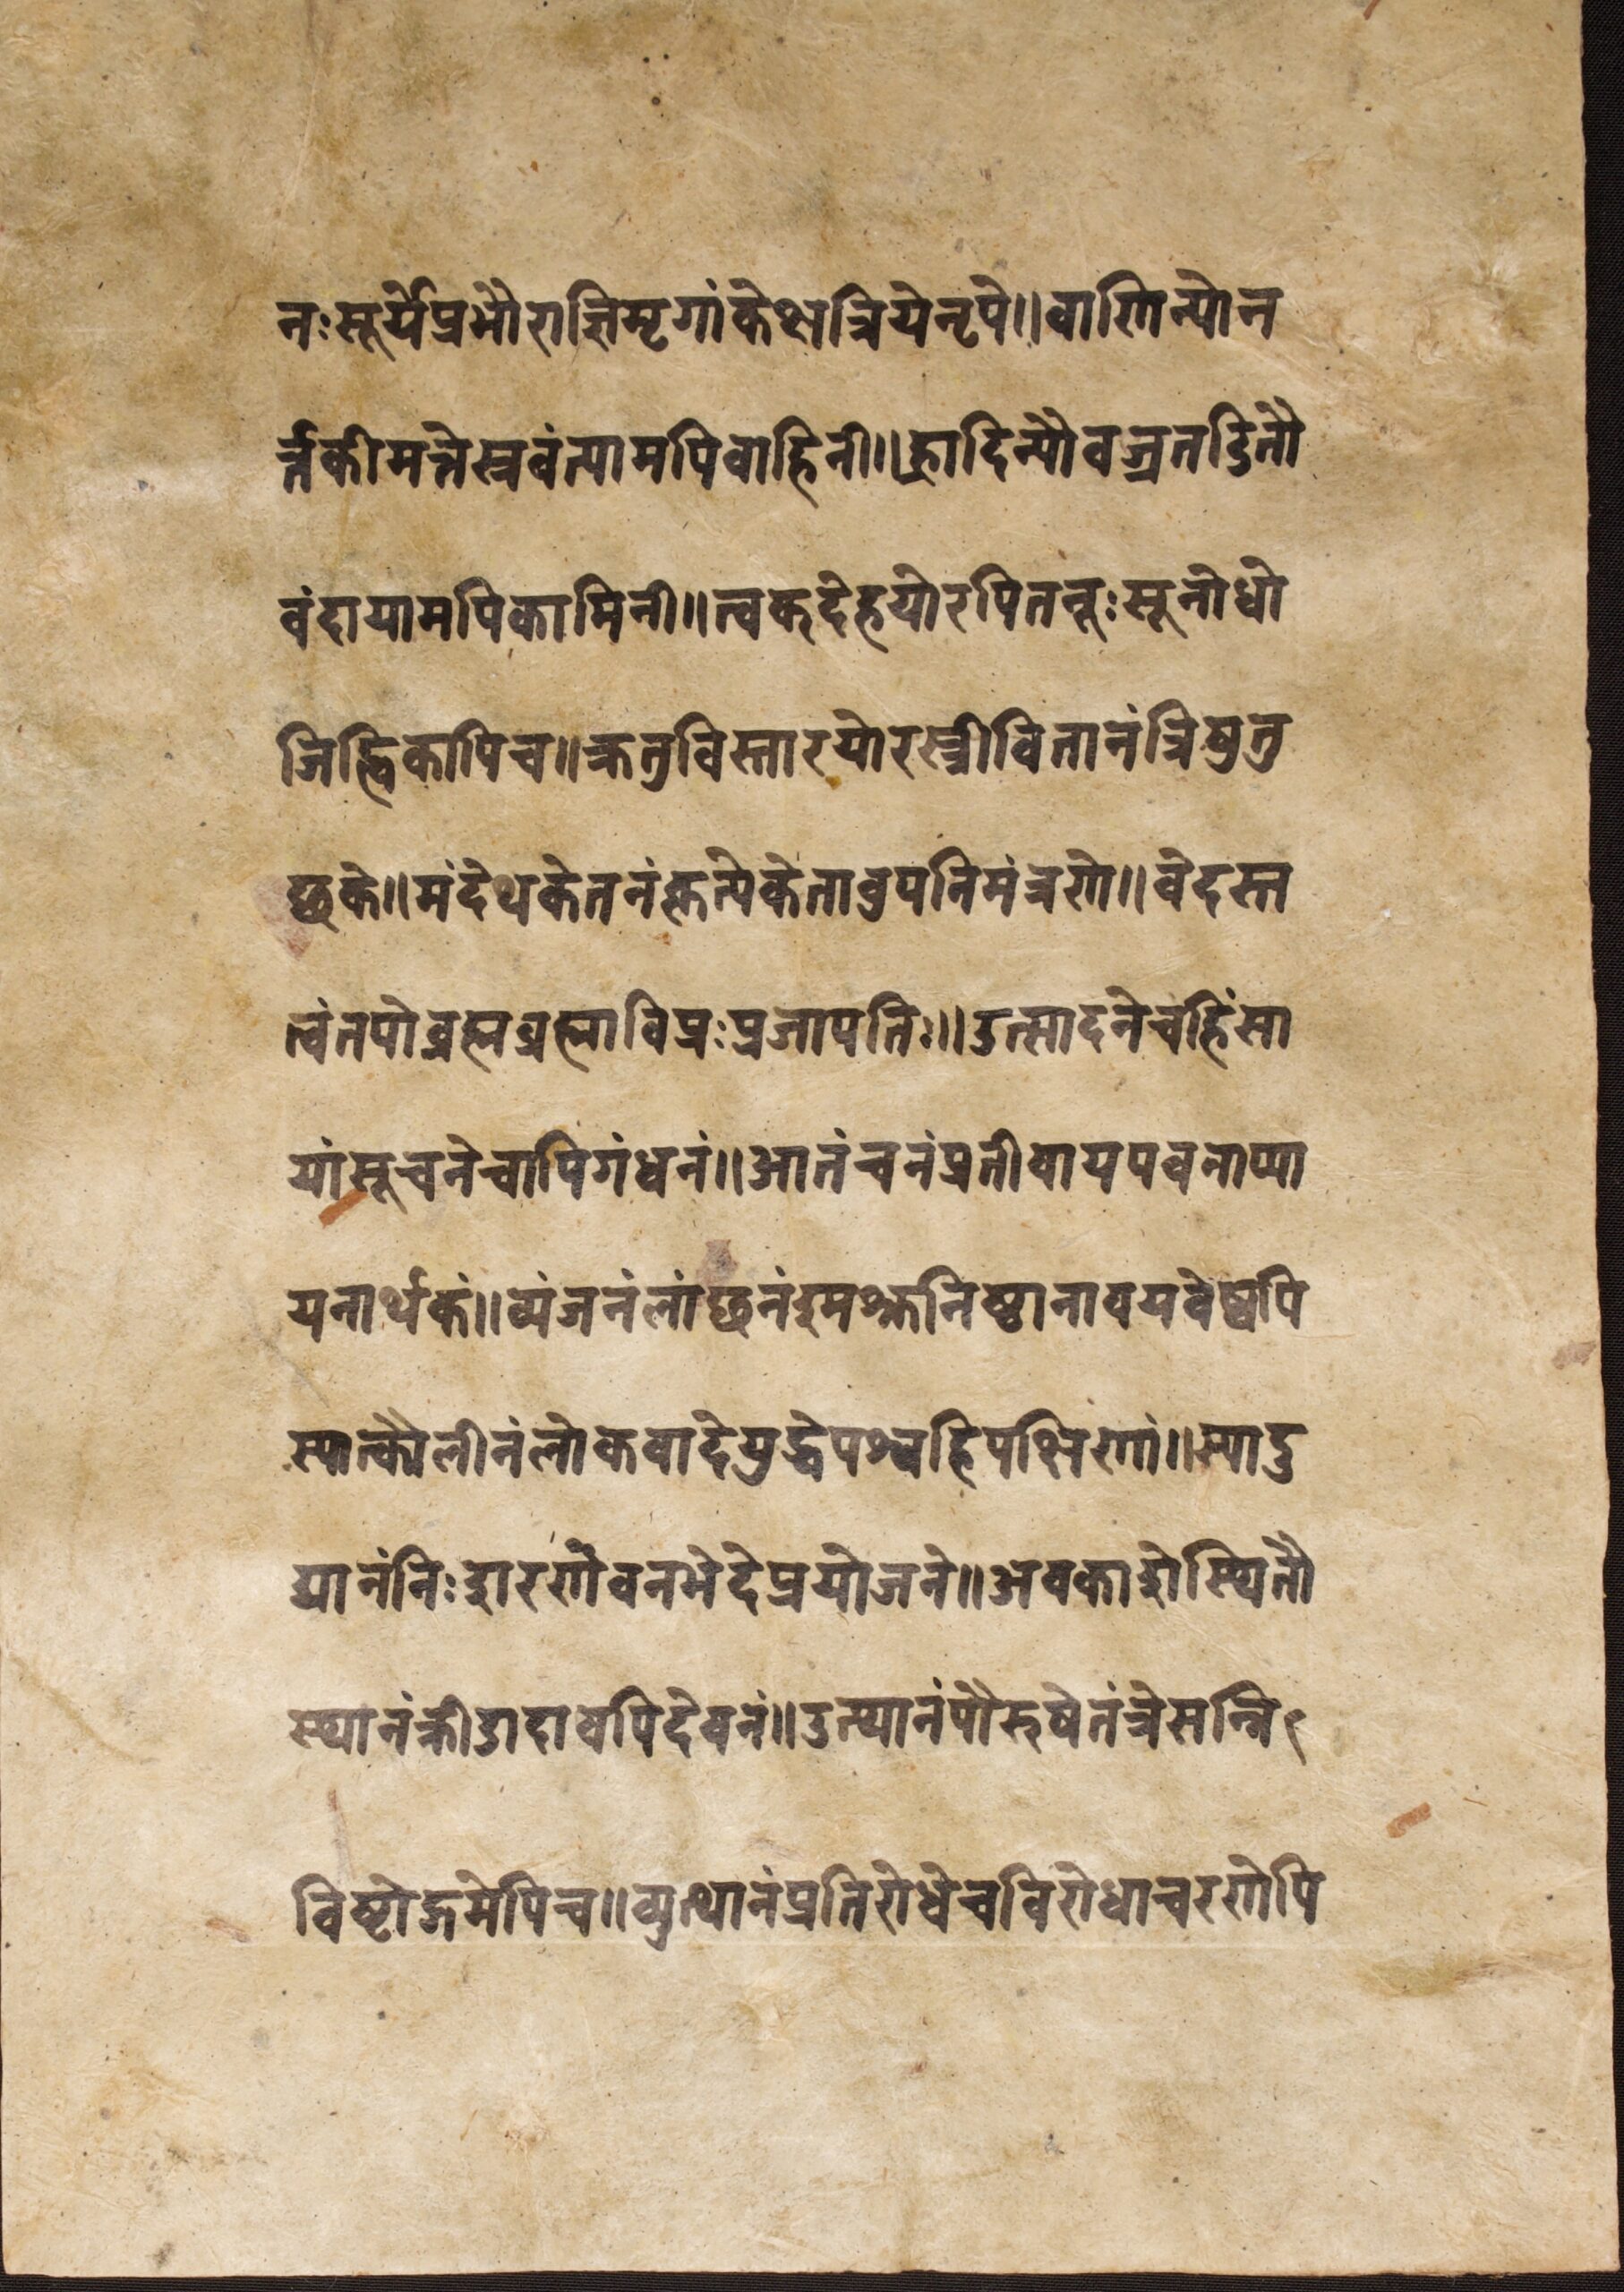 नःसूर्येप्रभौराज्ञिमृगांकेक्षत्रियेनृपे॥वाणिन्यौन
र्त्तकीमत्तेस्रवंत्यामपिवाहिनी॥ह्रादिन्यौवज्रतडितौ
वंदायामपिकामिनी॥त्वक्देहयोरपितनूःसूनोधो
जिह्विकापिच॥क्रतुविस्तारयोरस्त्रीवितानंत्रिषुतु
छके॥मंदेथकेतनंकृत्येकेतावुपनिमंत्रणे॥वेदस्त
त्वंतपोब्रह्मब्रह्माविप्रःप्रजापतिः॥उत्सादनेचहिंसा
यांसूचनेचापिगंधनं॥आतंचनंप्रतीवायपवनाप्या
यनार्थकं॥व्यंजनंलांछनंश्मश्रुनिष्ठानावयवेष्वपि
स्यात्कौलीनंलोकवादेयुद्धेपश्वहिपक्षिणां॥स्यादु
द्यानंनिःद्दारणेवनभेदेप्रयोजने॥अवकाशेस्थितौ
स्थानंक्रीडादावपिदेवनं॥उत्थानंपौरुषेतंत्रेसन्नि९
विष्टोद्गमेपिच॥व्युत्थानंप्रतिरोधेचविरोधाचरणेपि